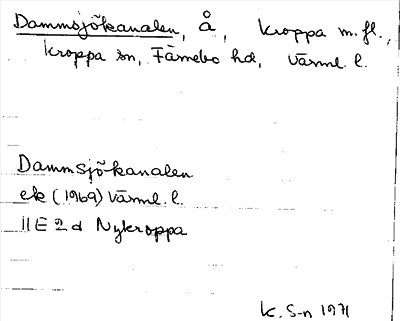 Dammsjökanalen, Å, Kroppa m. fl.,
Kroppa sn, Färnebo hd, Värml. l.
Dammsjökanalen
ek (1969) Värml. l.
11 E 2 d Nykroppa
K. S-n 1971